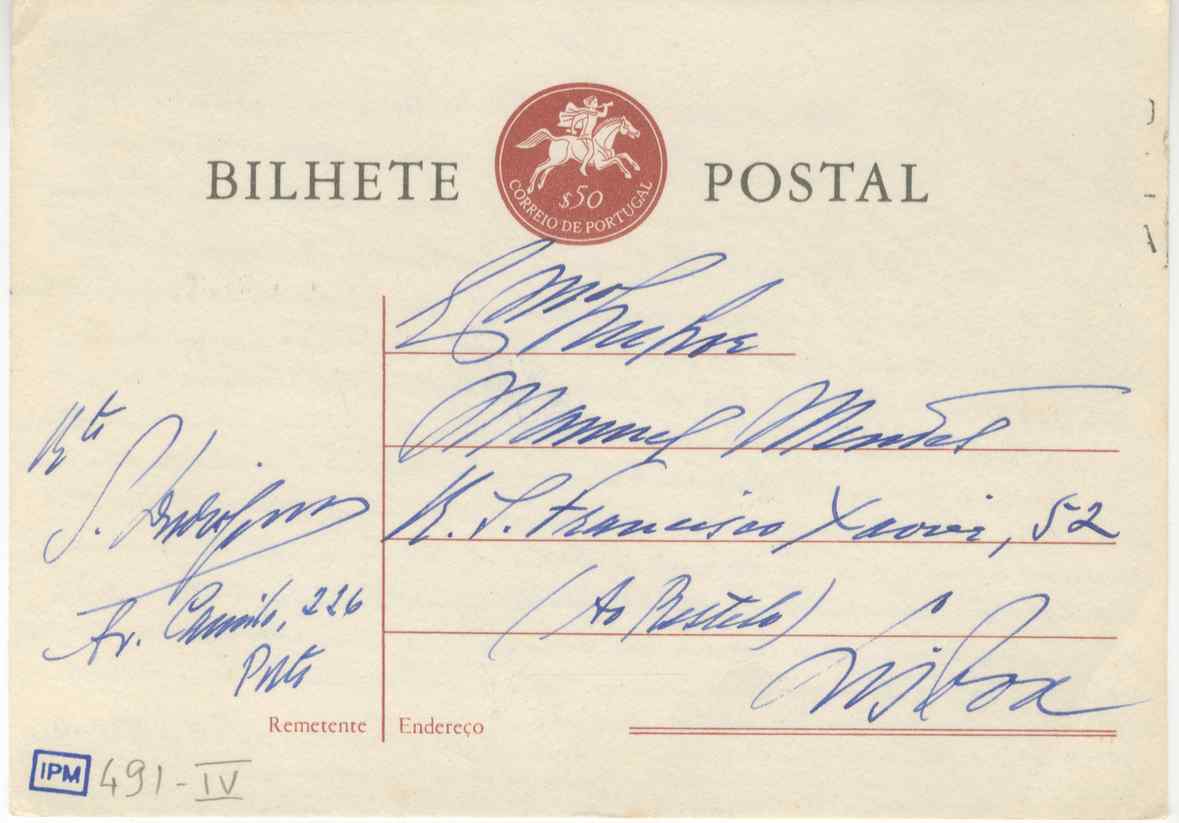 BILHETE POSTAL
$50
CORREIO DE PORTUGAL
Exmo
Manuel Mendes
R. S. Francisco Xavier, 52
(Ao Restelo)
Lisboa
Rte
S. Rodrigues
Av. Camilo, 226
Porto
Remetente
Endereço
IPM 491-IV